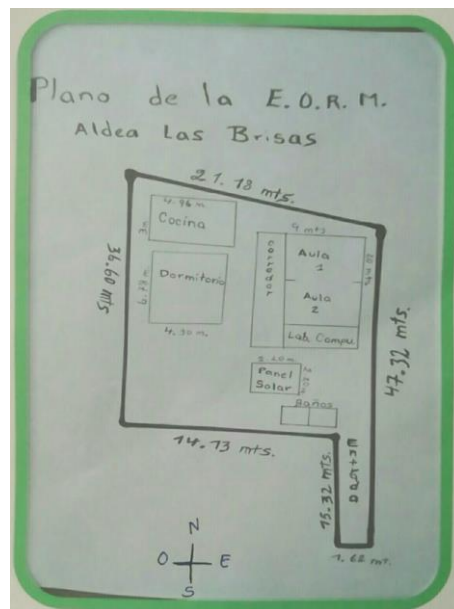 Plano de la E.O.R.M.
Aldea Las Brisas
21.18 mts.
36.60 mts
4.96 m.
3m
Cocina
Dormitorio
4.30 m.
9 mts
corredor
Aula
1
Aula
2
Lab. Compu.
Panel
Solar
Baños
47.32 mts.
14.73 mts.
15.32 mts.
Entrada
1.62 mt.
N
O
E
S